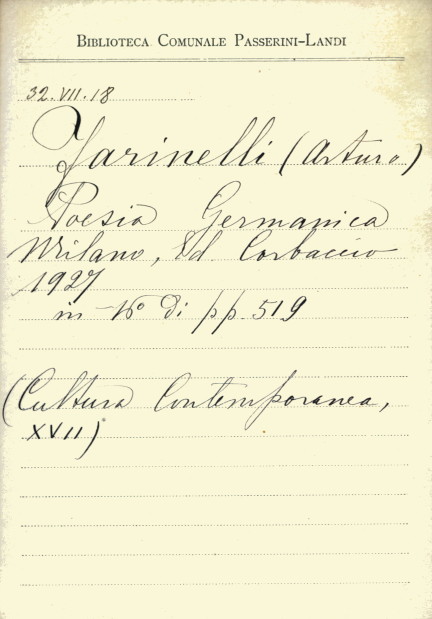 BIBLIOTECA COMUNALE PASSERINI-LANDI
32.VII.18
Farinelli (Arturo)
Poesia Germanica
Milano, Ed. Corbaccio
1927
in-16º di pp. 519
(Cultura Contemporanea,
XVII)